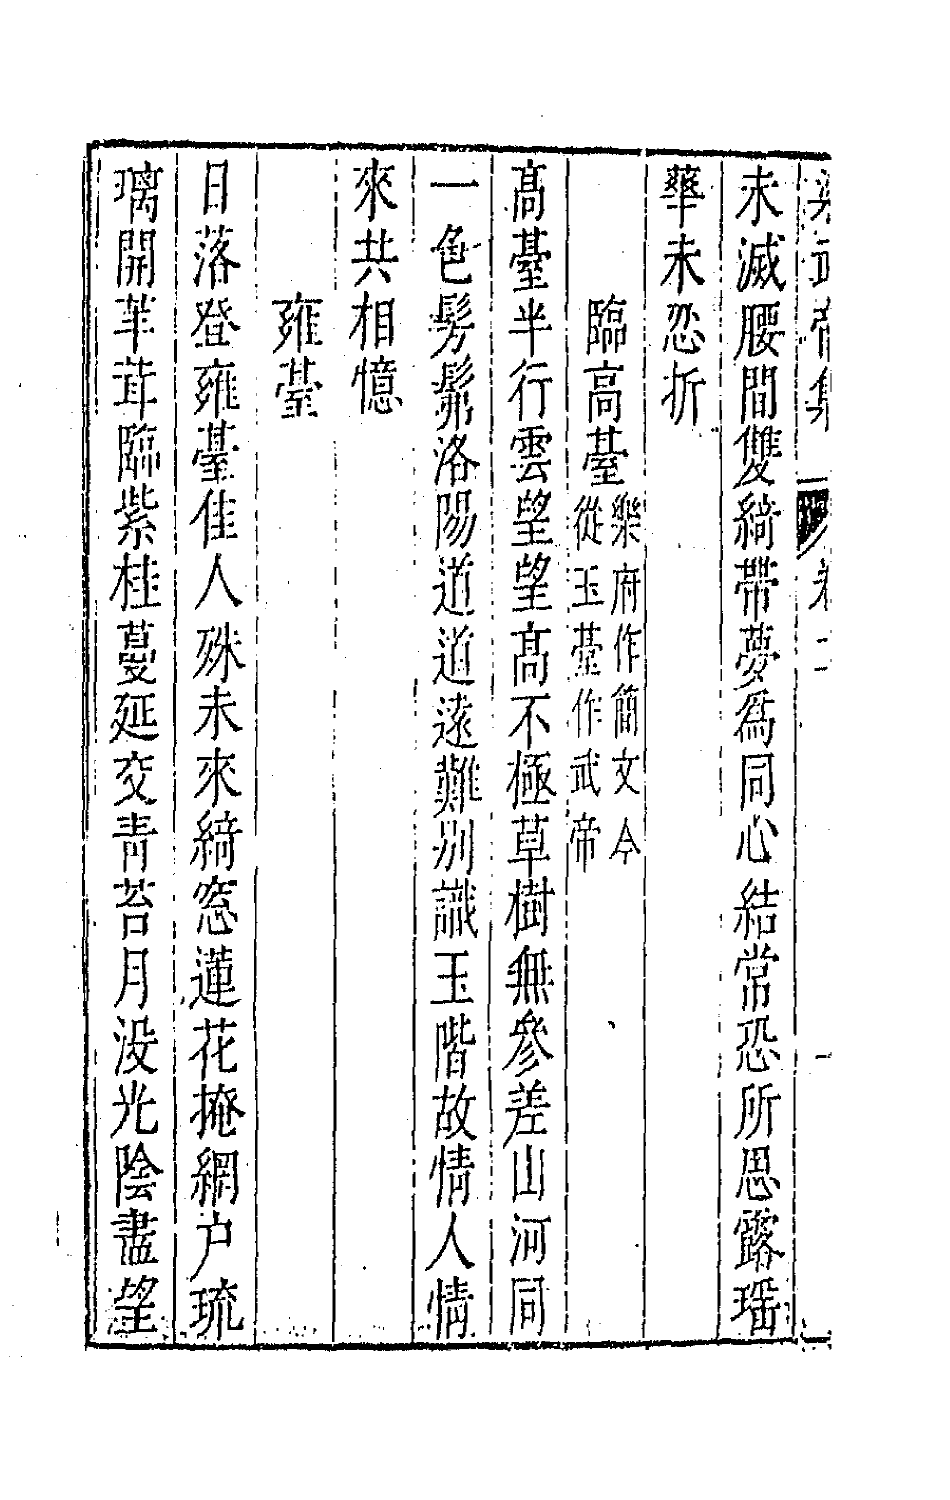 梁武帝集 卷一 一
未滅腰間雙綺帶夢為同心結常恐所思露瑤
華未忍折
臨高臺樂府作簡文今從玉臺作武帝
髙臺半行雲望望髙不極草樹無參差山河同
一色髣髴洛陽道道遠難別識玉階故情人情
來共相憶
雍臺
日落登雍臺佳人殊未來綺窓蓮花掩網户琉
璃開芊茸臨紫桂蔓延交青苔月没光陰盡望